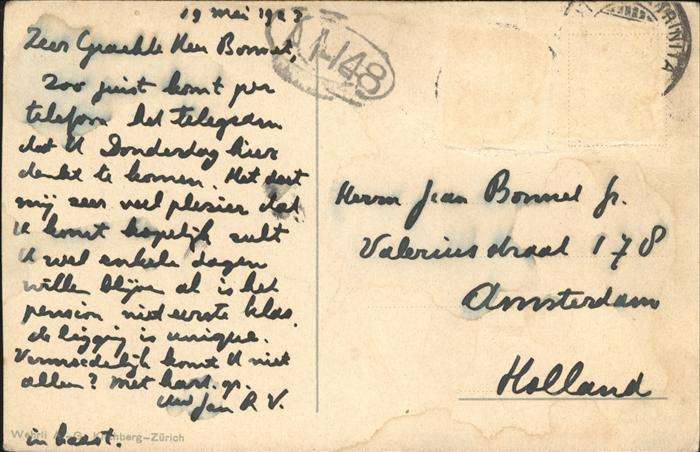 19 mei 1923
Zeer Geachte Heer Bonnet,
Zoo juist komt per
telefoon het telegram
dat U Donderdag hier
denkt te komen. Het doet
mij zeer veel plezier dat
U komt hopelijk zult
U wel enkele dagen
willen blijven al is het
pension niet eerste klas.
de ligging is unique.
Vermoedelijk komt U niet
alleen? Met hart. gr.
Uw Jan R. V.
in haast.
A H48
TRINITA
Herrn Jean Bonnet Jr.
Valeriusstraat 178
Amsterdam
Holland
Wehrli A.-G., Kilchberg-Zürich